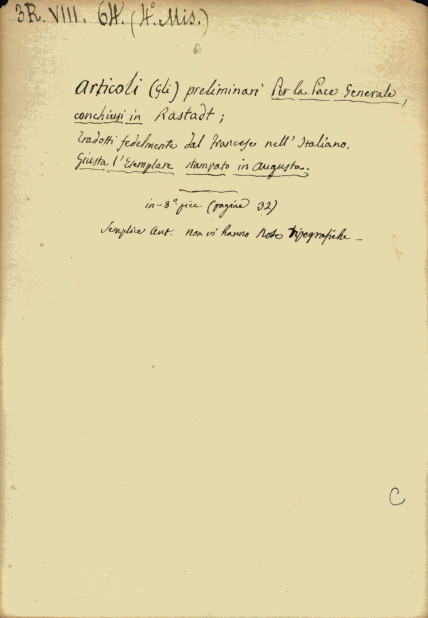 3R. VIII. 64. (4.° Mis.)
Articoli (gli) preliminari Per la Pace Generale,
conchiusi in Rastadt;
Tradotti fedelmente dal Francese nell' Italiano.
Giusta l'Esemplare stampato in Augusta.
in-8.° picc. (pagine 32)
Semplice Ant. non vi hanno Note tipografiche –
C